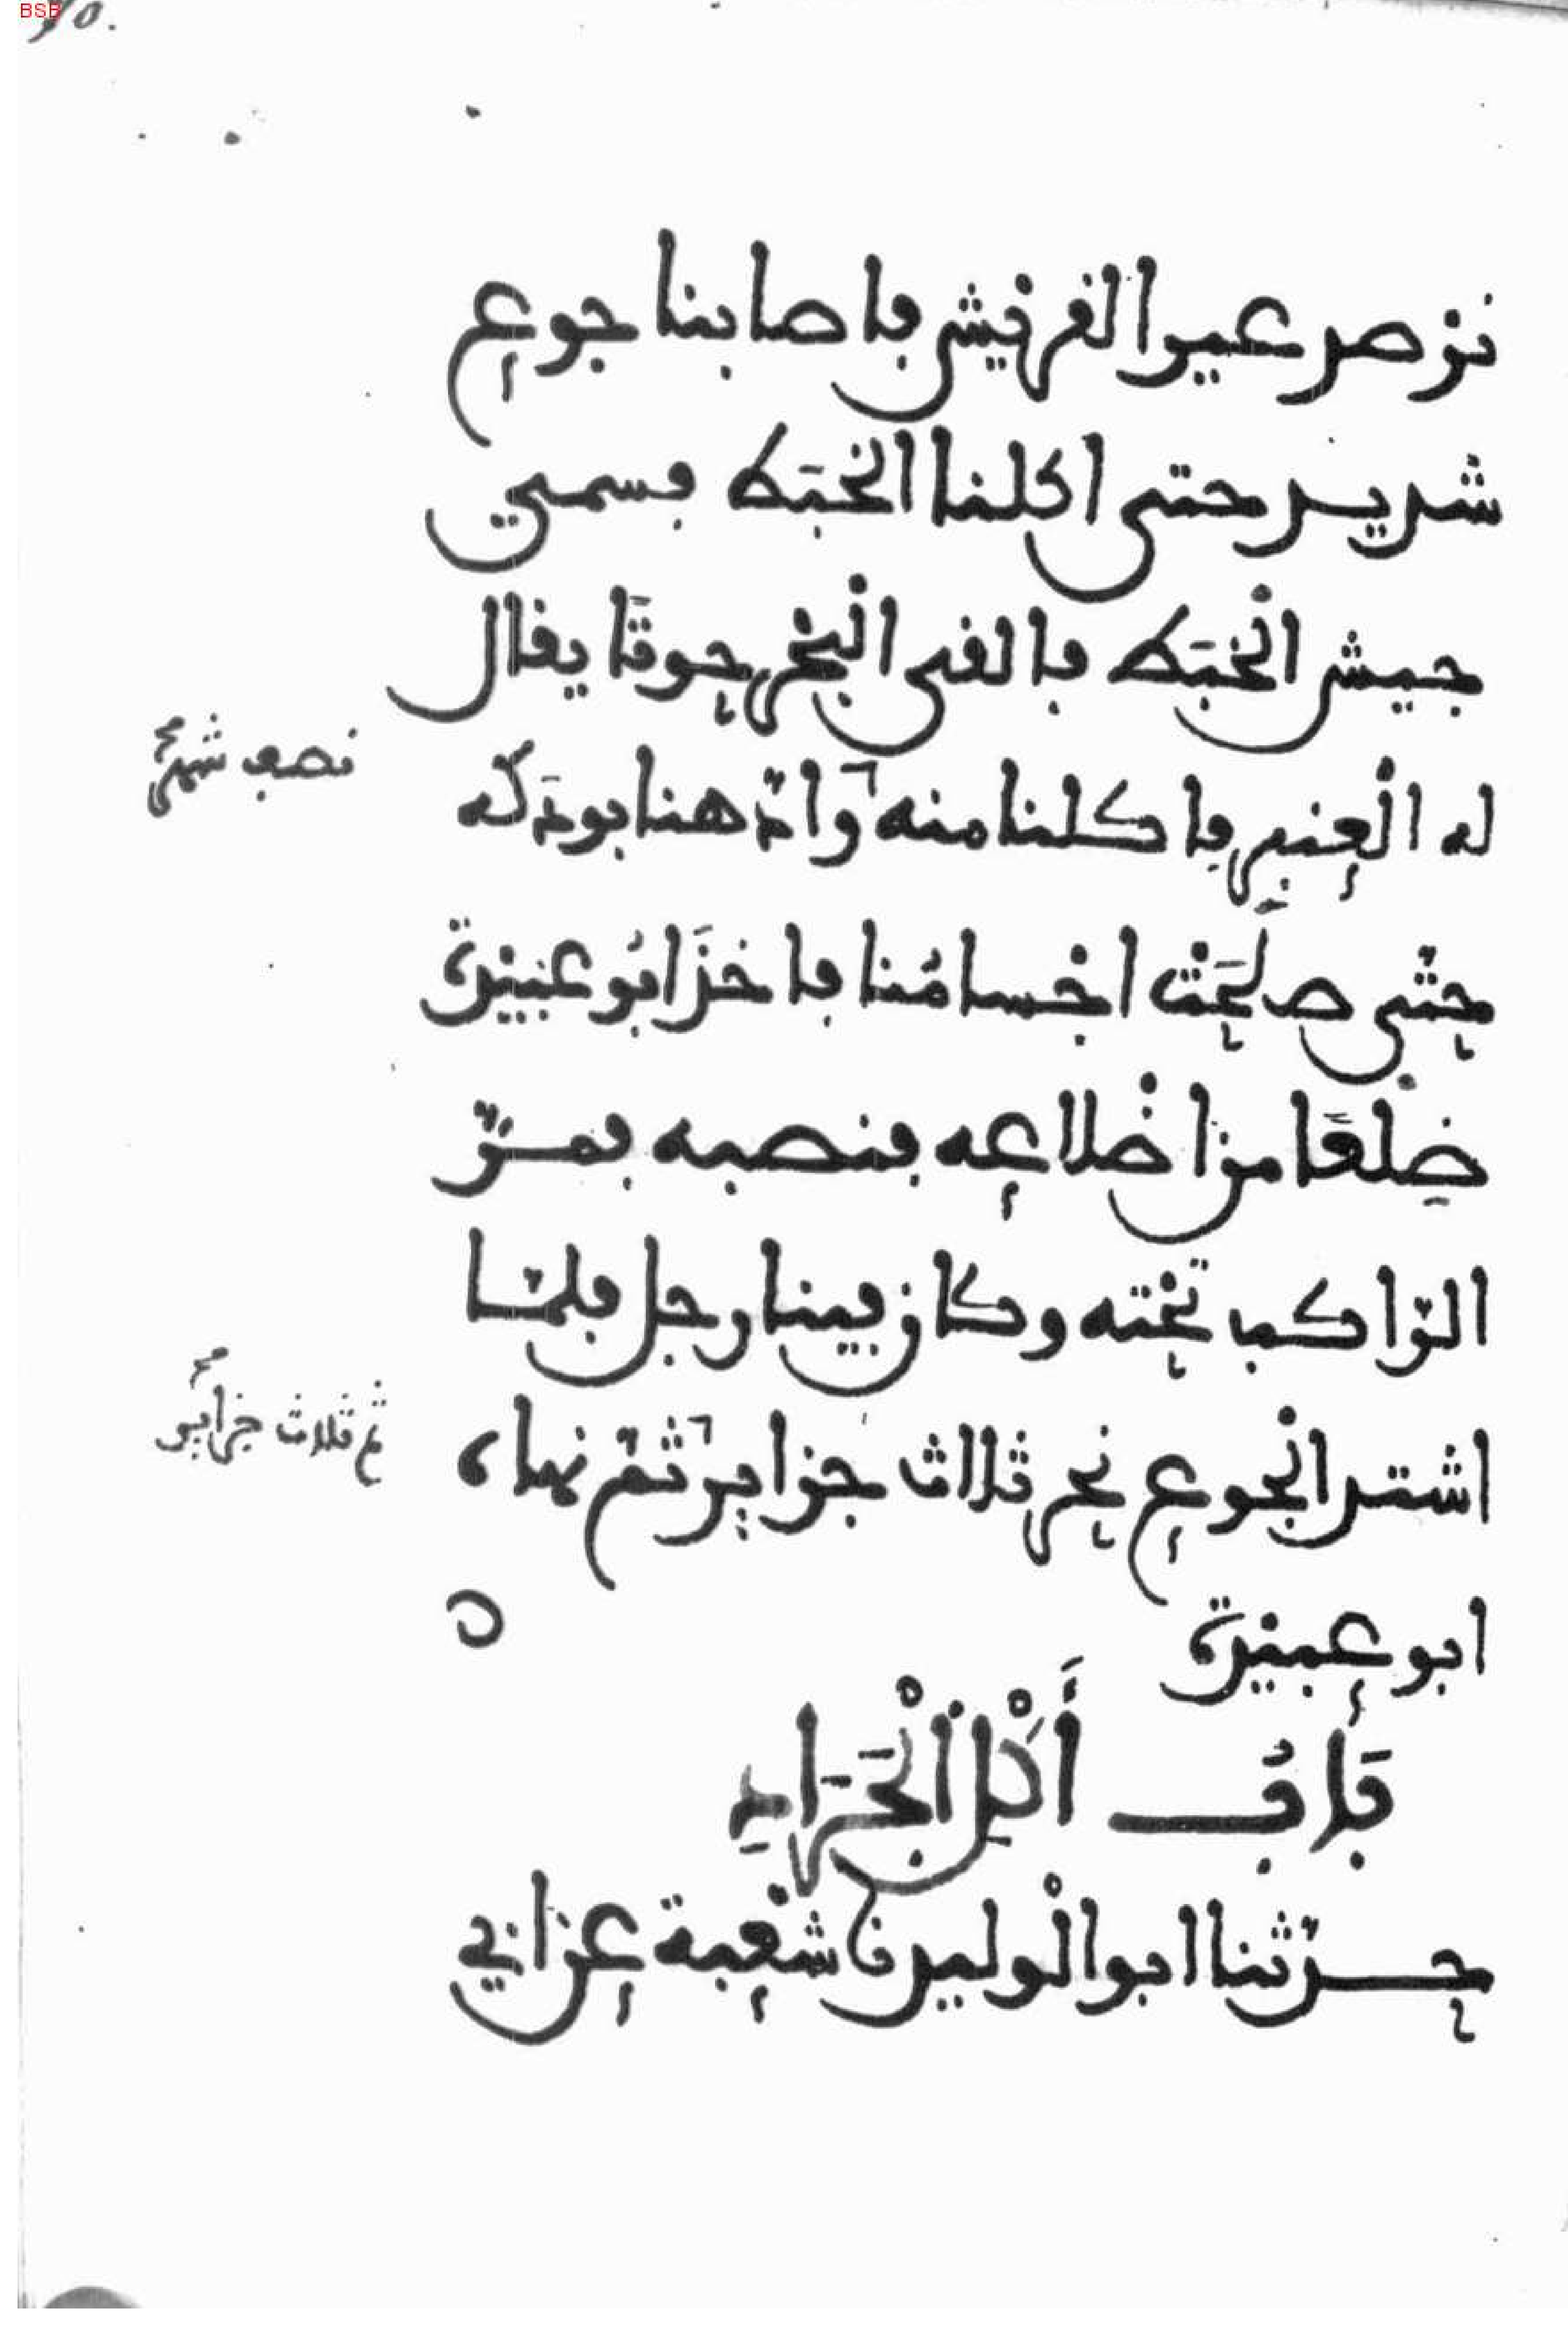 نرصد عيرا لقريش فاصابنا جوع
شديد حتى اكلنا الخبَط فسمي
جيش الْخبَط فالقى الْبحر حوتًا يقال
له الْعنبر فاكلنا منه وادّهنا بودَكه
حتّى صلَحَتْ اجْسامُنا فاخذَ ابُو عبيدة
ضِلْعًا من اضْلاعه فنصبه فمرّ
الرّاكب تحْته وكان فينا رجل فلمّا
نصف شهر صح
اشتد الْجوع نحر ثلاث جزاير ثمّ نهاه
ثم ثلاث جزاير صح
ابو عبيدة
بَابُ أَكْلِ الْجَرَادِ
حدّثنا ابو الْوليد نا شعْبة عن ابي
BSB